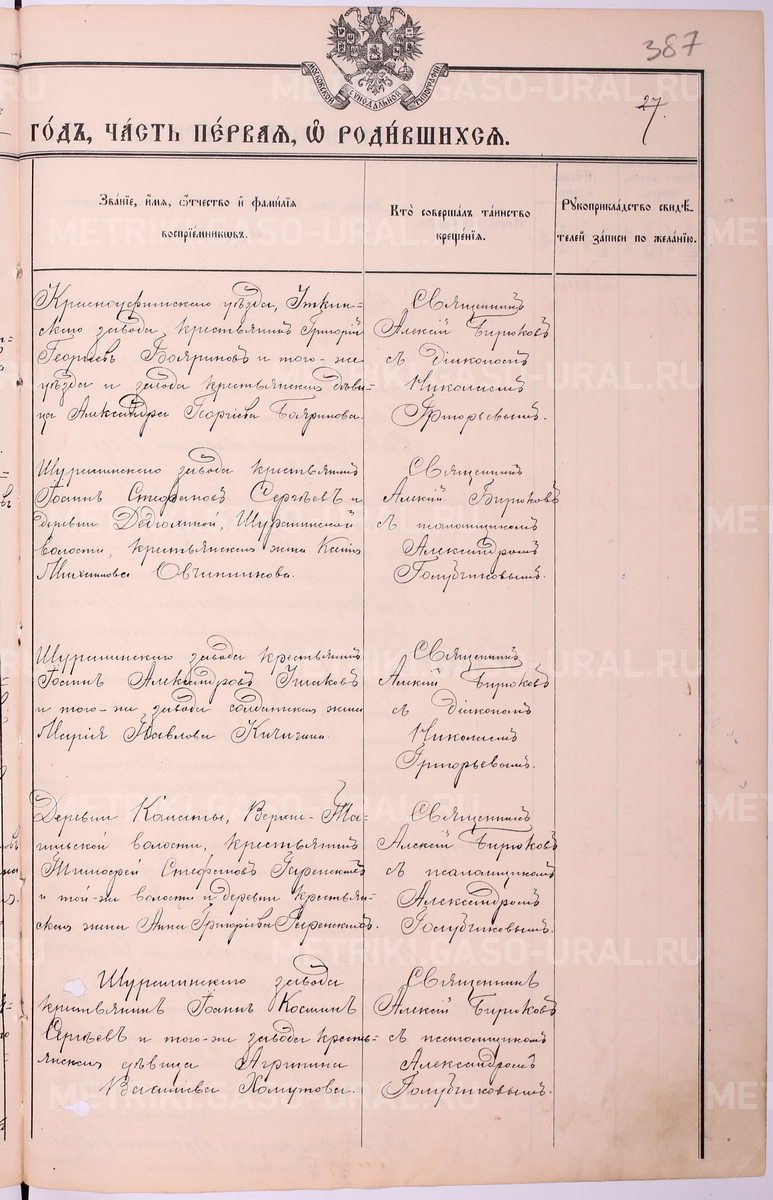 387
МОСКОВСКОЙ СѴНОДАЛЬНОЙ ТИПОГРАФІИ
27.
ГО́ДЪ, ЧА́СТЬ ПЕ́РВАЯ, Ѽ РОДИ́ВШИХСЯ.
Зва́нїе, и҆́мѧ, ѻ҆́тчество и҆ фами́лїѧ
воспрїе́мникѡвъ.
Кто̀ соверша́лъ та́инство
креще́нїѧ.
Рꙋкоприкла́дство свидѣ́-
телей за́писи по жела́нїю.
Красноуфимскаго уѣзда, Иткин-
скаго завода, крестьянинъ Григорій
Георгіевъ Бояриновъ и того-же
уѣзда и завода крестьянская дѣви-
ца Александра Георгіева Бояринова.
Священникъ
Алексій Бирюковъ
съ діакономъ
Николаемъ
Григорьевымъ.
Шуралинскаго завода крестьянинъ
Іоаннъ Стефановъ Сергѣевъ и
деревни Дедюлиной, Шуралинской
волости, крестьянская жена
Михаилова Овчинникова.
Священникъ
Алексій Бирюковъ
съ псаломщикомъ
Александромъ
Голубчиковымъ.
Шуралинскаго завода крестьянинъ
Іоаннъ Александровъ Ушаковъ
и того-же завода солдатская жена
Марія Павлова Кичигина.
Священникъ
Алексій Бирюковъ
съ діакономъ
Николаемъ
Григорьевымъ.
Деревни Калаты, Верхне-Та-
гильской волости, крестьянинъ
Тимофей Стефановъ
и той-же волости и деревни крестьян-
ская жена Анна Григоріева
Священникъ
Алексій Бирюковъ
съ псаломщикомъ
Александромъ
Голубчиковымъ.
Шуралинскаго завода
крестьянинъ Іоаннъ Косминъ
Сергѣевъ и того-же завода кресть-
янская дѣвица Агрипина
Василіева Хомутова.
Священникъ
Алексій Бирюковъ
съ псаломщикомъ
Александромъ
Голубчиковымъ.
METRIKI.GASO-URAL.RU